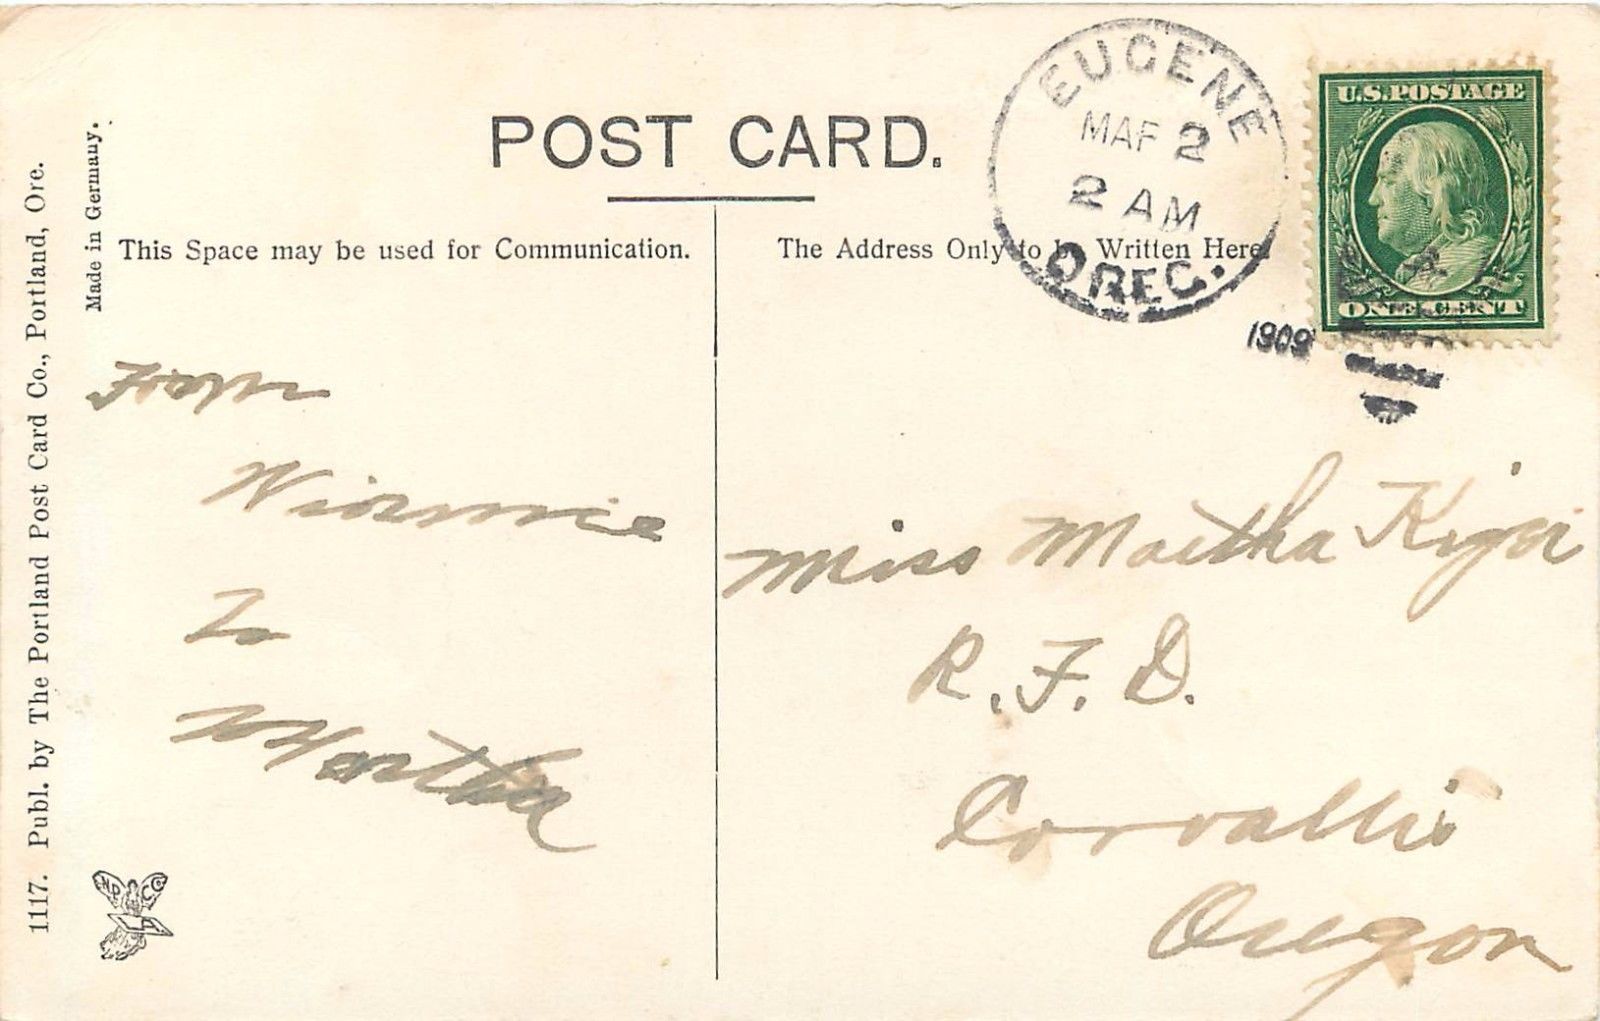 POST CARD.
This Space may be used for Communication.
The Address Only to be Written Here.
1117. Publ. by The Portland Post Card Co., Portland, Ore.
Made in Germany.
EUGENE
MAR 2
2 AM
OREG.
1909
U.S. POSTAGE
ONE CENT
From
Winnie
To
Martha
Miss Martha Kiger
R. F. D.
Corvallis
Oregon